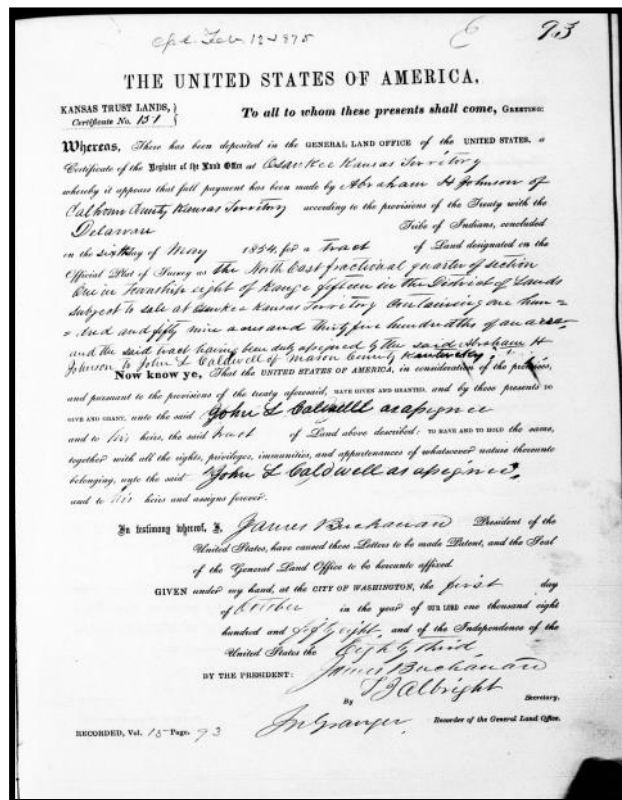 Feb. 12 1875
93
THE UNITED STATES OF AMERICA,
KANSAS TRUST LANDS,
Certificate No. 151
To all to whom these presents shall come, GREETING:
Whereas, There has been deposited in the GENERAL LAND OFFICE of the UNITED STATES, a
Certificate of the Register of the Land Office at Osawkee Kansas Territory
whereby it appears that full payment has been made by Abraham H Johnson of
Calhoun County Kansas Territory according to the provisions of the Treaty with the
Delaware Tribe of Indians, concluded
on the sixth day of May 1854, for a tract of Land designated on the
Official Plat of Survey as the North East fractional quarter of section
One in Township eight of Range fifteen in the District of Lands
subject to sale at Osawkee Kansas Territory Containing one hun=
=dred and fifty nine acres and thirty five hundredths of an acre
and the said tract having been duly assigned by the said Abraham H
Johnson to John L Caldwell of Mason County Kentucky
Now know ye, That the UNITED STATES OF AMERICA, in consideration of the premises,
and pursuant to the provisions of the treaty aforesaid, HAVE GIVEN AND GRANTED, and by these presents DO
GIVE AND GRANT, unto the said John L Caldwell as assignee
and to his heirs, the said tract of Land above described: TO HAVE AND TO HOLD the same,
together with all the rights, privileges, immunities, and appurtenances of whatsoever nature thereunto
belonging, unto the said John L Caldwell as assignee,
and to his heirs and assigns forever.
In testimony whereof, I, James Buchanan President of the
United States, have caused these Letters to be made Patent, and the Seal
of the General Land Office to be hereunto affixed.
GIVEN under my hand, at the CITY OF WASHINGTON, the first day
of October in the year of OUR LORD one thousand eight
hundred and fifty eight, and of the Independence of the
United States the Eighty third
BY THE PRESIDENT: James Buchanan
By T J Albright Secretary.
Jn Granger Recorder of the General Land Office.
RECORDED, Vol. 15 Page. 93